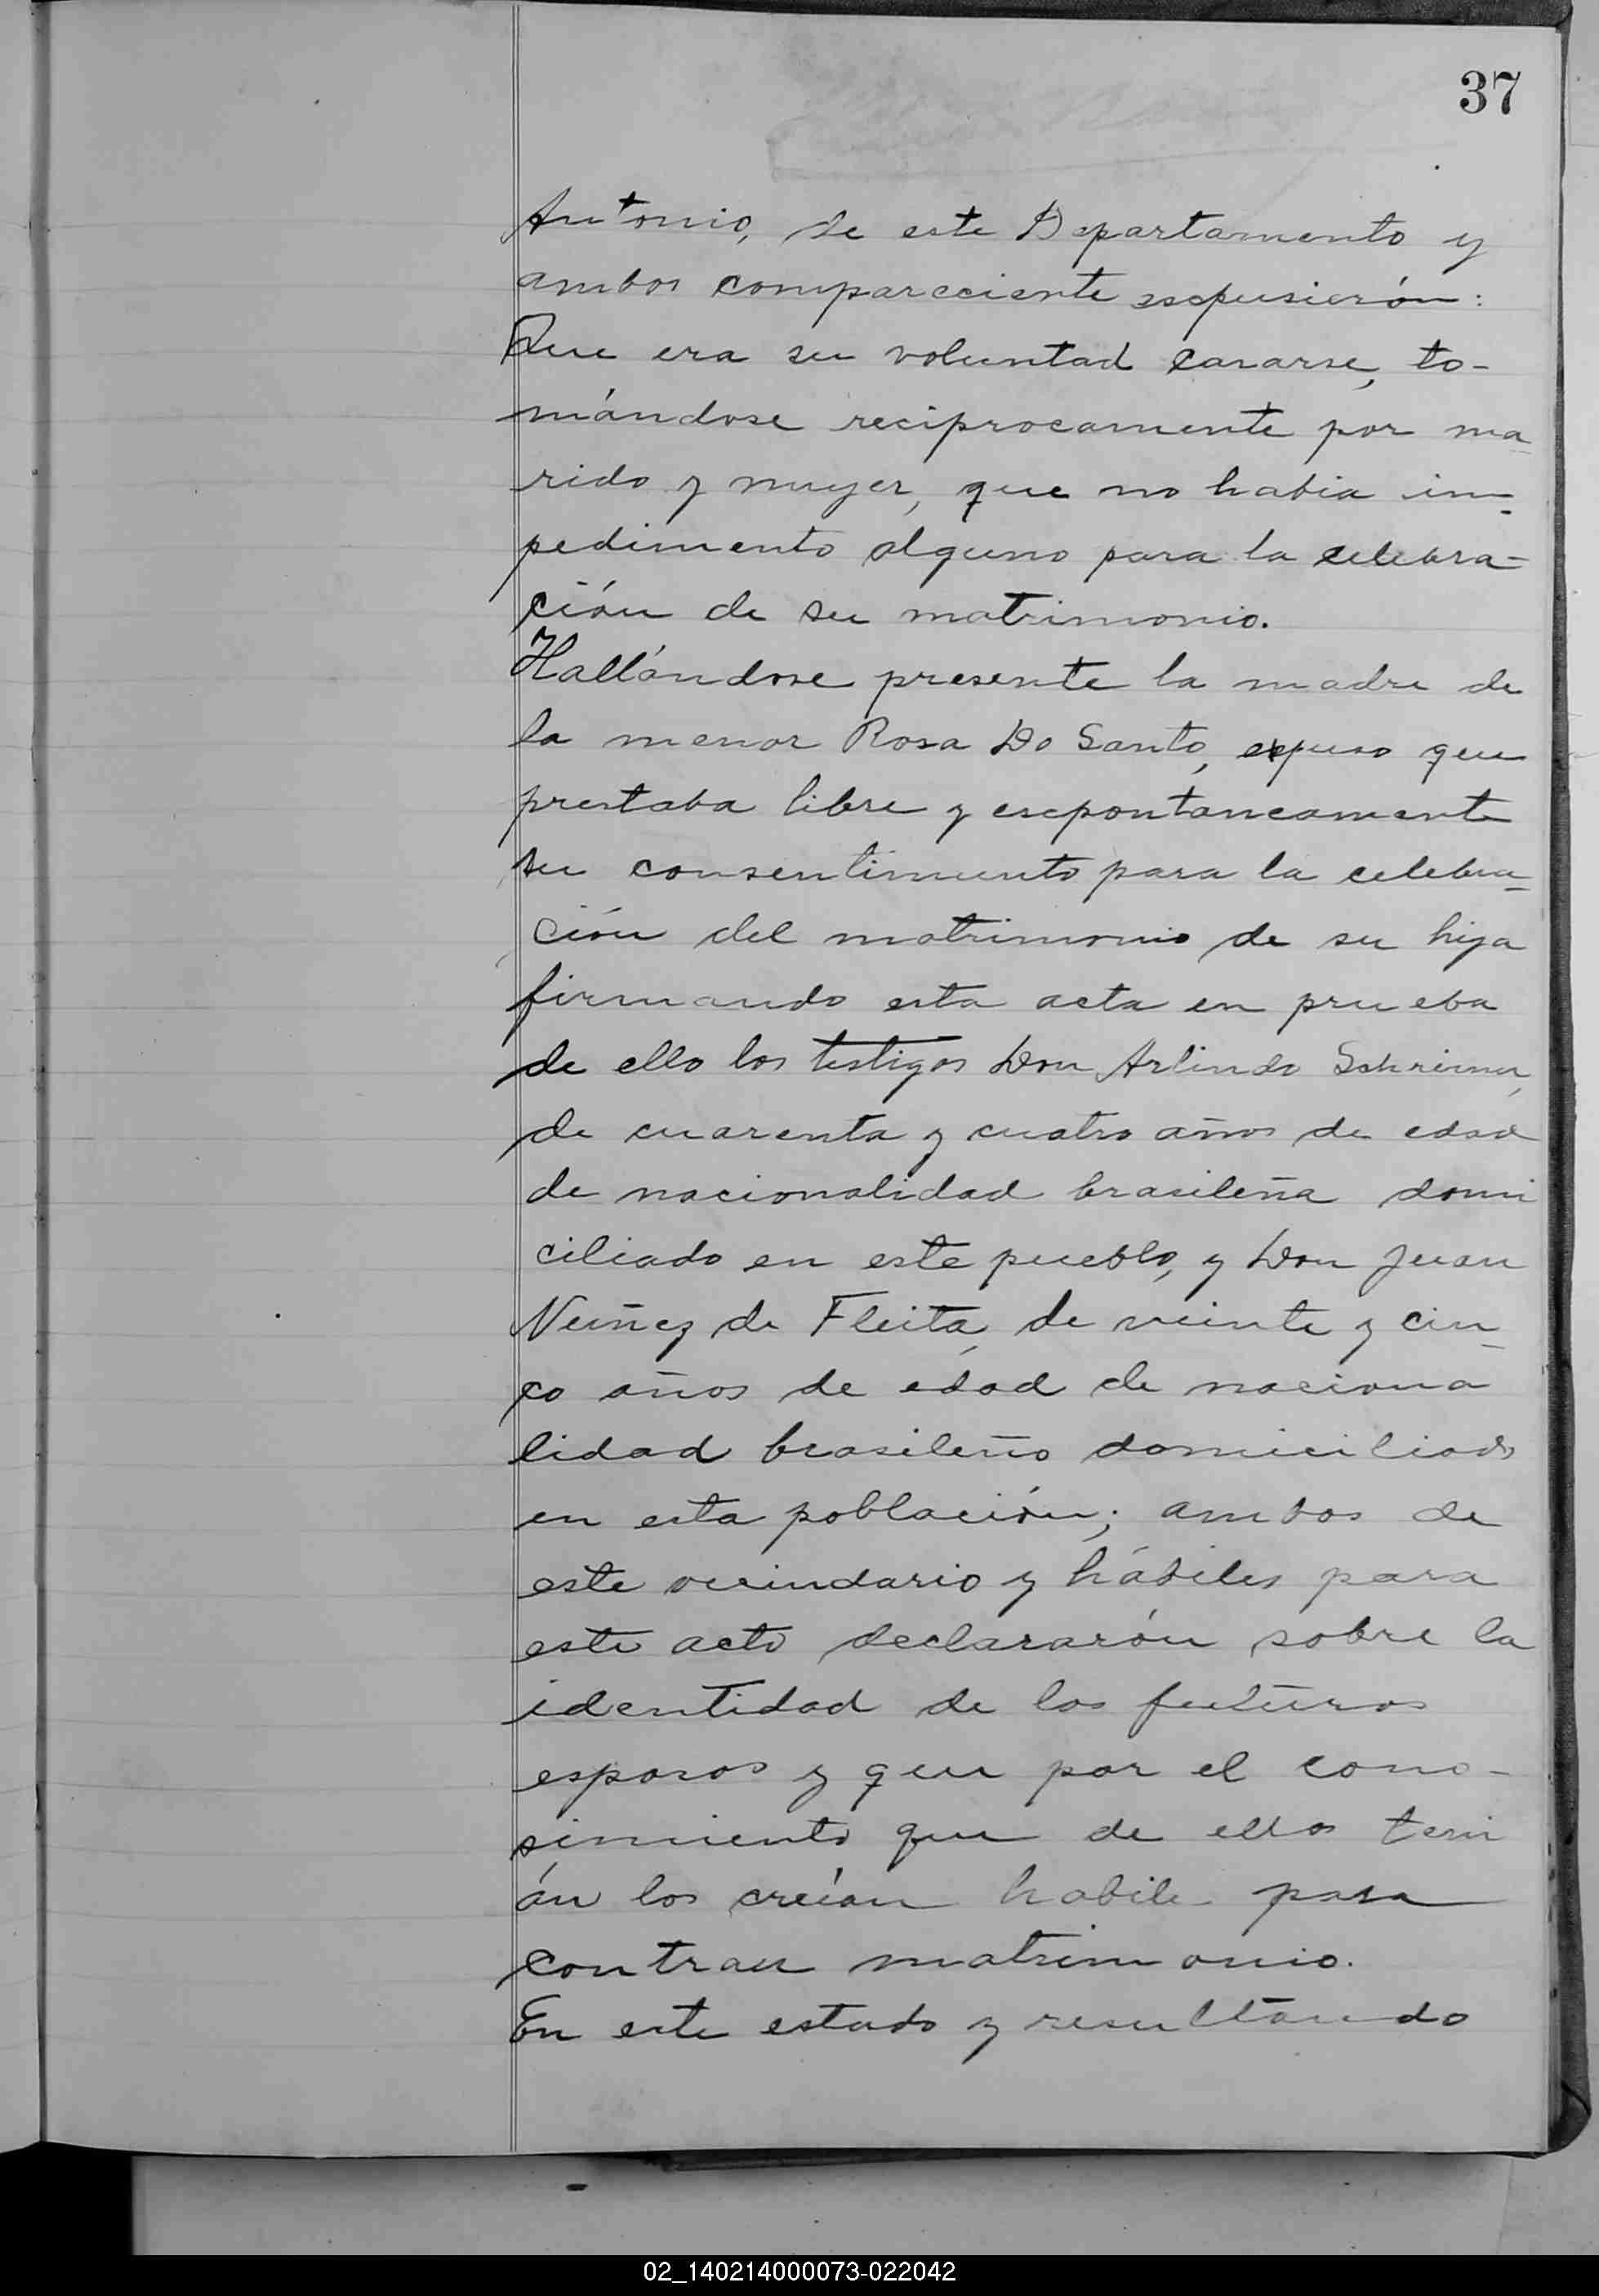 37
Antonio, de este Departamento y
ambos compareciente escpusierón:
Que era su voluntad casarse, to-
mándose reciprocamente por ma-
rido y mujer, que no habia im-
pedimento alguno para la celebra-
ción de su matrimonio.
Hallándose presente la madre de
la menor Rosa Do Santo, expuso que
prestaba libre y escpontaneamente
su consentimiento para la celebra-
ción del matrimonio de su hija
firmando esta acta en prueba
de ello los testigos Don Arlindo
de cuarenta y cuatro años de edad
de nacionalidad brasileña domi
ciliado en este pueblo, y Don Juan
Nuñez de Fleita, de veinte y cin-
co años de edad de naciona
lidad brasileño domiciliado
en esta población; ambos de
este vecindario y hábiles para
este acto declararón sobre la
identidad de los futuros
esposos y que por el cono-
simiento que de ellos teni
án los creían habile para
contraer matrimonio.
En este estado y resultando
02_140214000073-022042